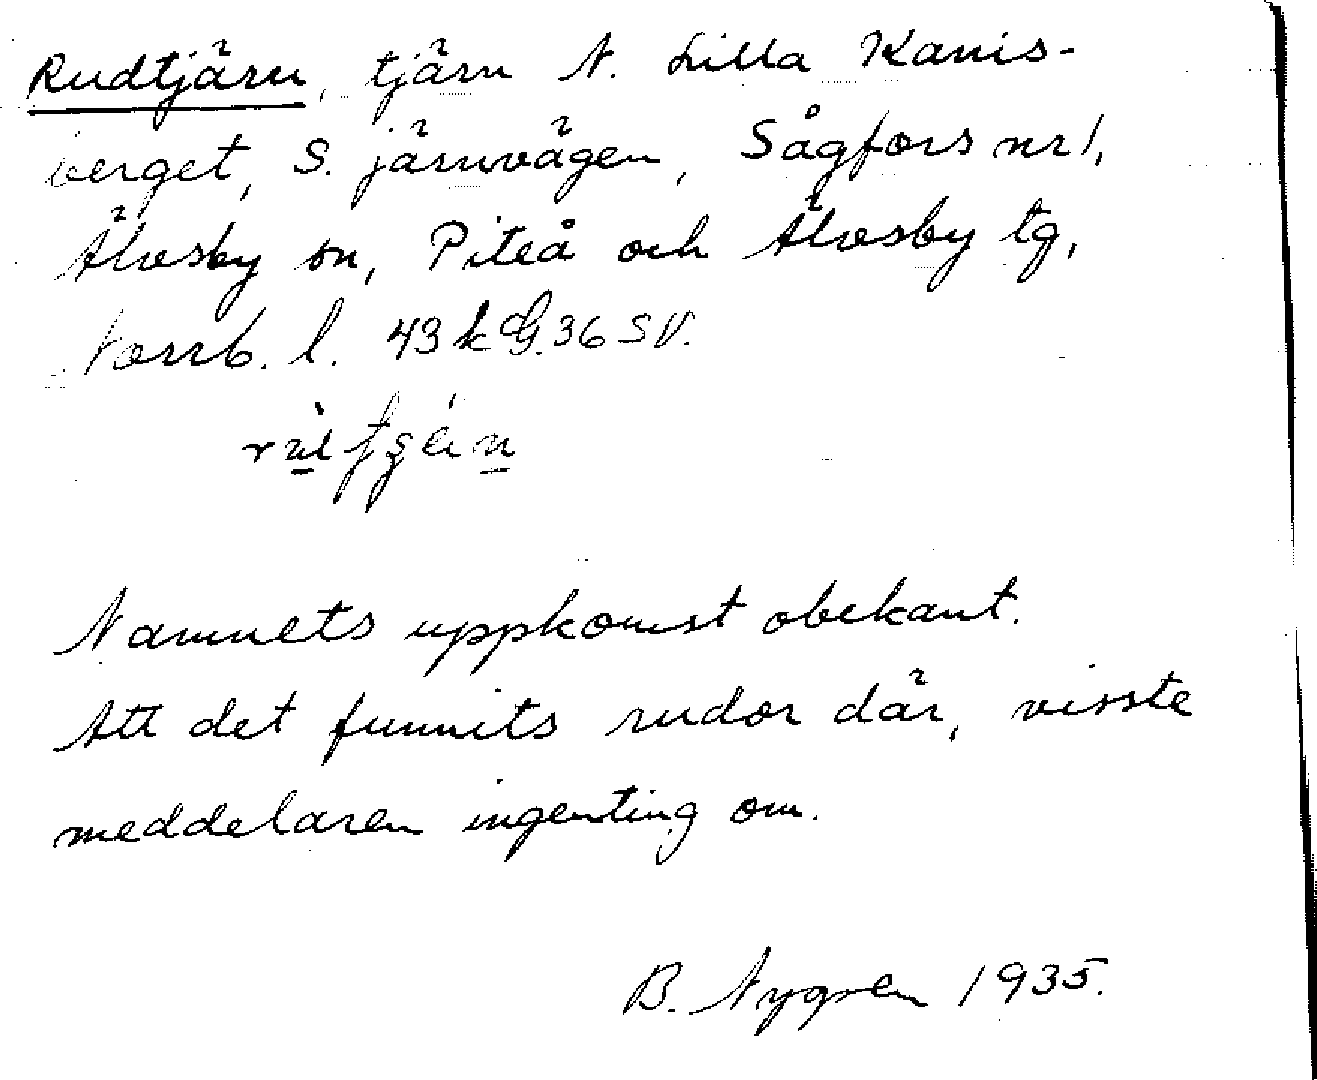 Rudtjärn, tjärn N. Lilla Kanis-
berget, S. järnvägen, Sågfors nr 1,
Älvsby sn, Piteå och Älvsby tg,
Norrb. l. 43 k G. 36 SV.
Namnets uppkomst obekant.
Att det funnits rudor där, visste
meddelaren ingenting om.
B. Nygren 1935.